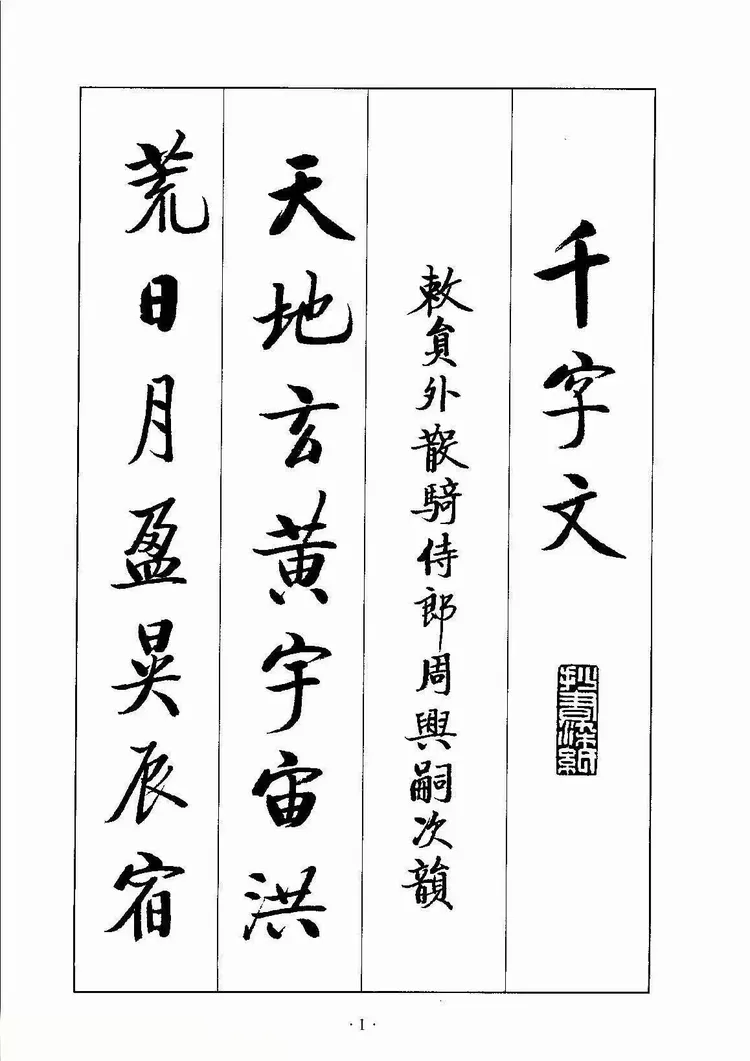 千字文
敕員外散騎侍郎周興嗣次韻
天地玄黃宇宙洪
荒日月盈昃辰宿
·1·